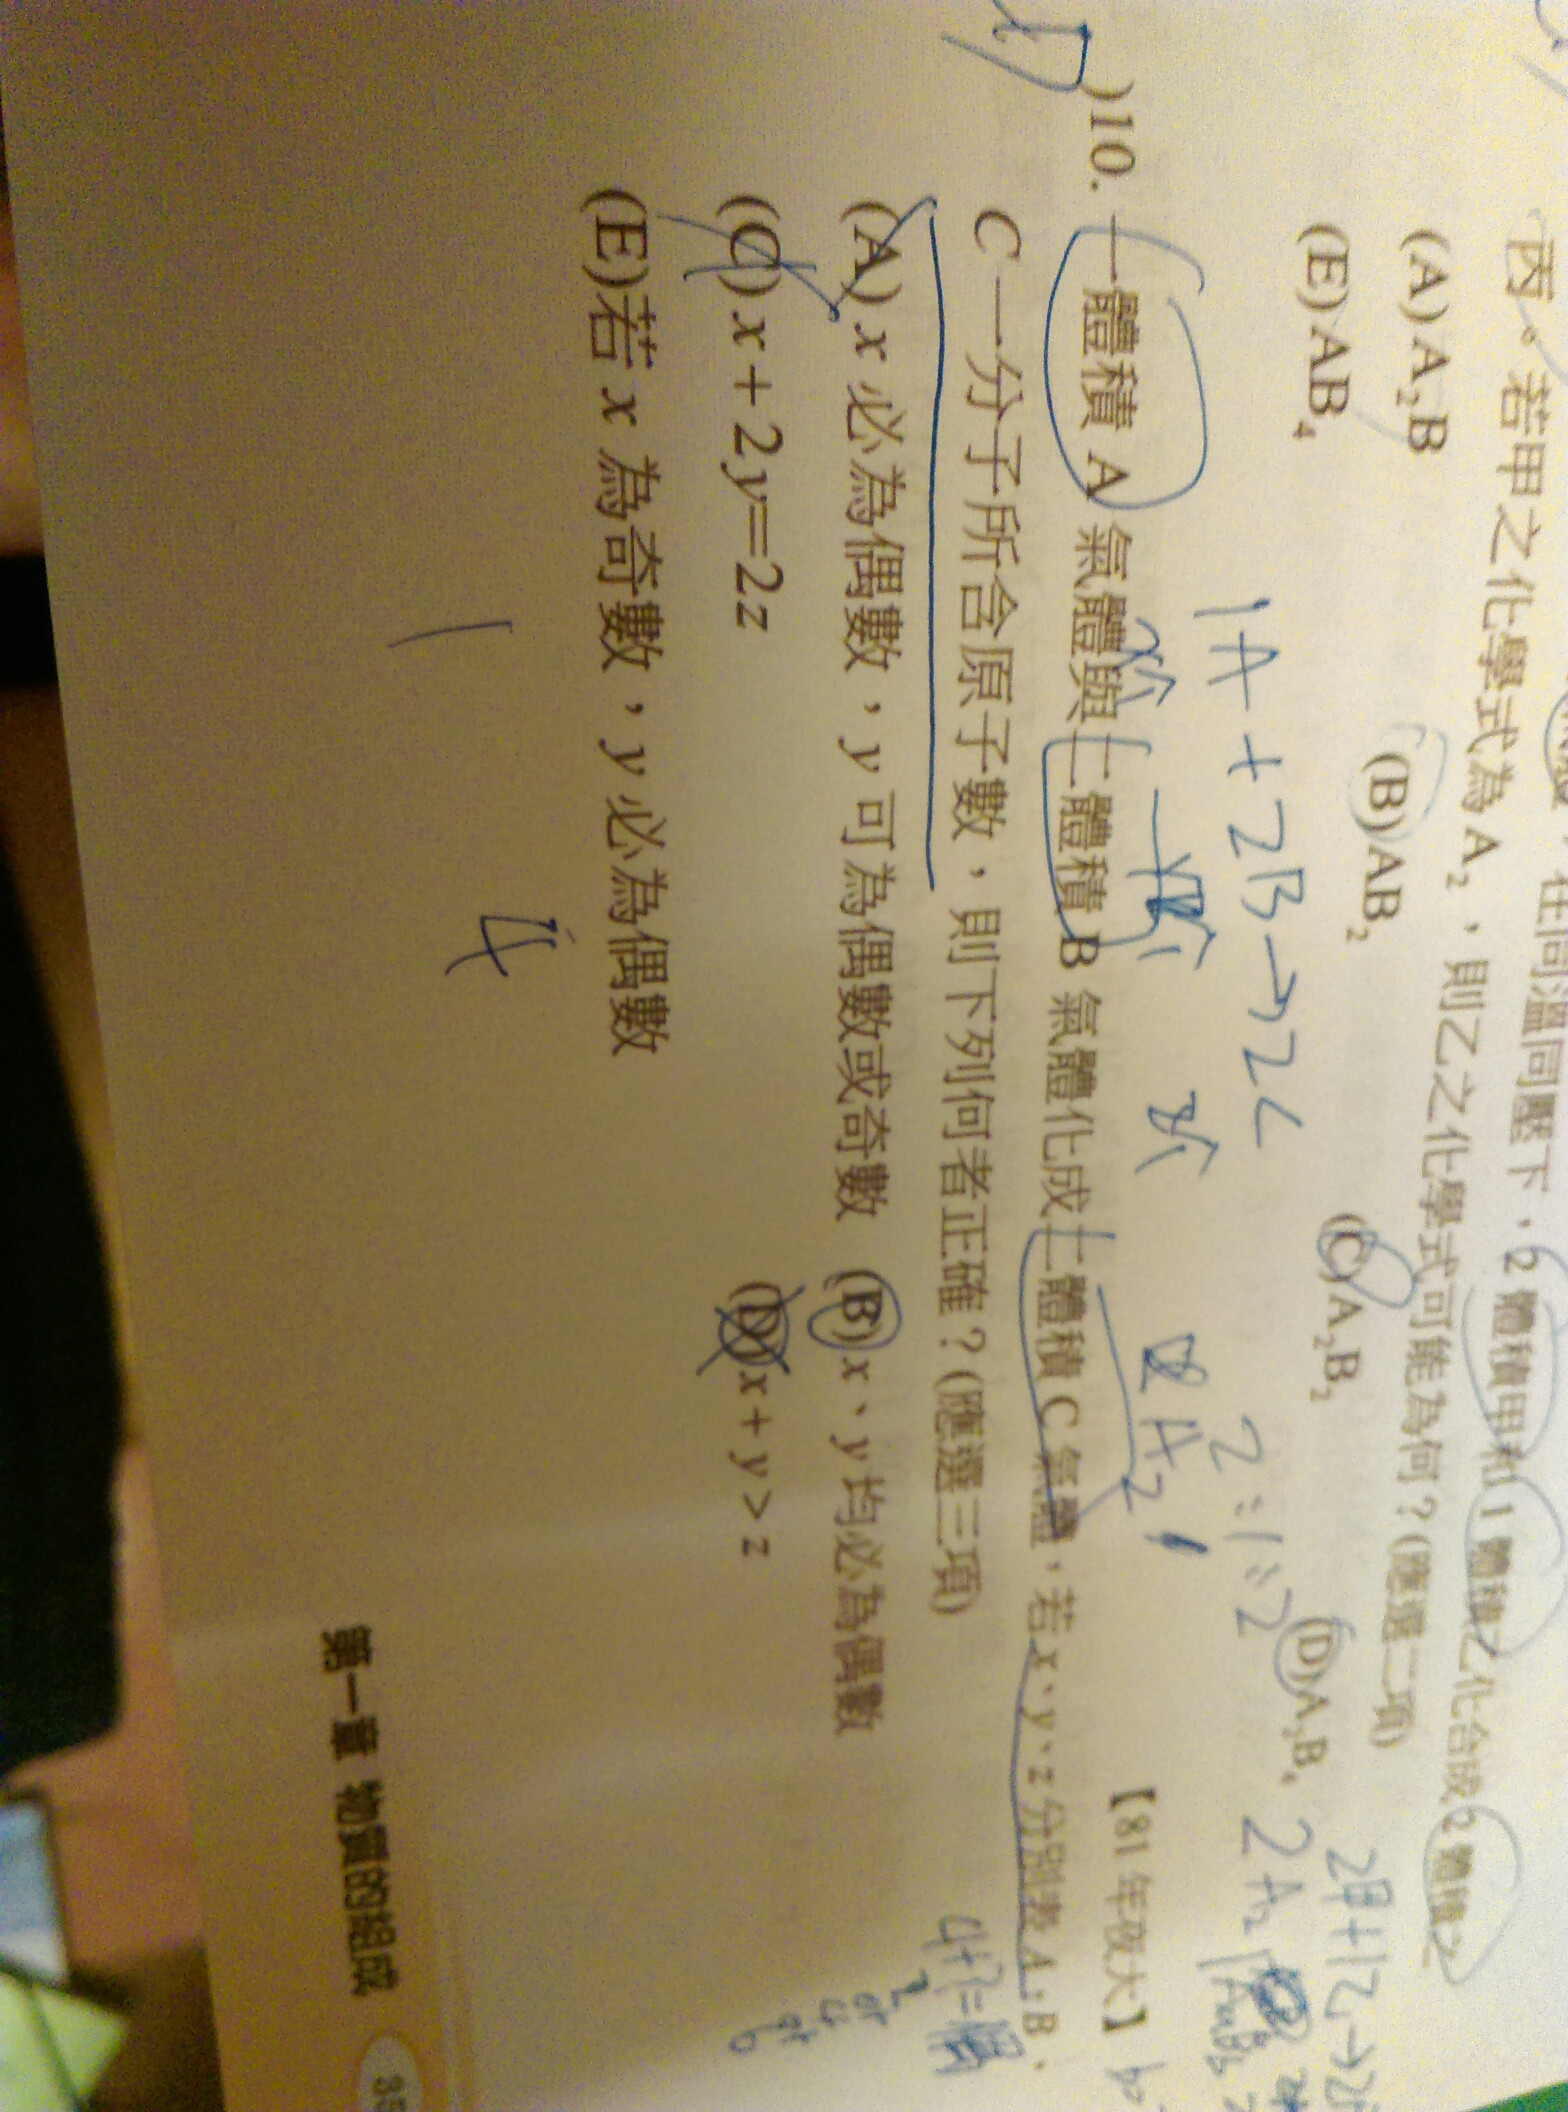 在同溫同壓下，2 體積甲和 1 體積乙化合成 2 體積之
丙。若甲之化學式為 A₂，則乙之化學式可能為何？(應選二項)
(A) A₂B (B) AB₂ (C) A₂B₂ (D) A₂B₄
(E) AB₄
【81 年夜大】
1A + 2B → 2C
2:1:2
)10. 一體積 A 氣體與二體積 B 氣體化成二體積 C 氣體，若 x、y、z 分別表 A、B、
C 一分子所含原子數，則下列何者正確？(應選三項)
(A) x 必為偶數，y 可為偶數或奇數 (B) x、y 均必為偶數
(C) x + 2y = 2z (D) x + y > z
(E) 若 x 為奇數，y 必為偶數
4
第一章 物質的組成 35